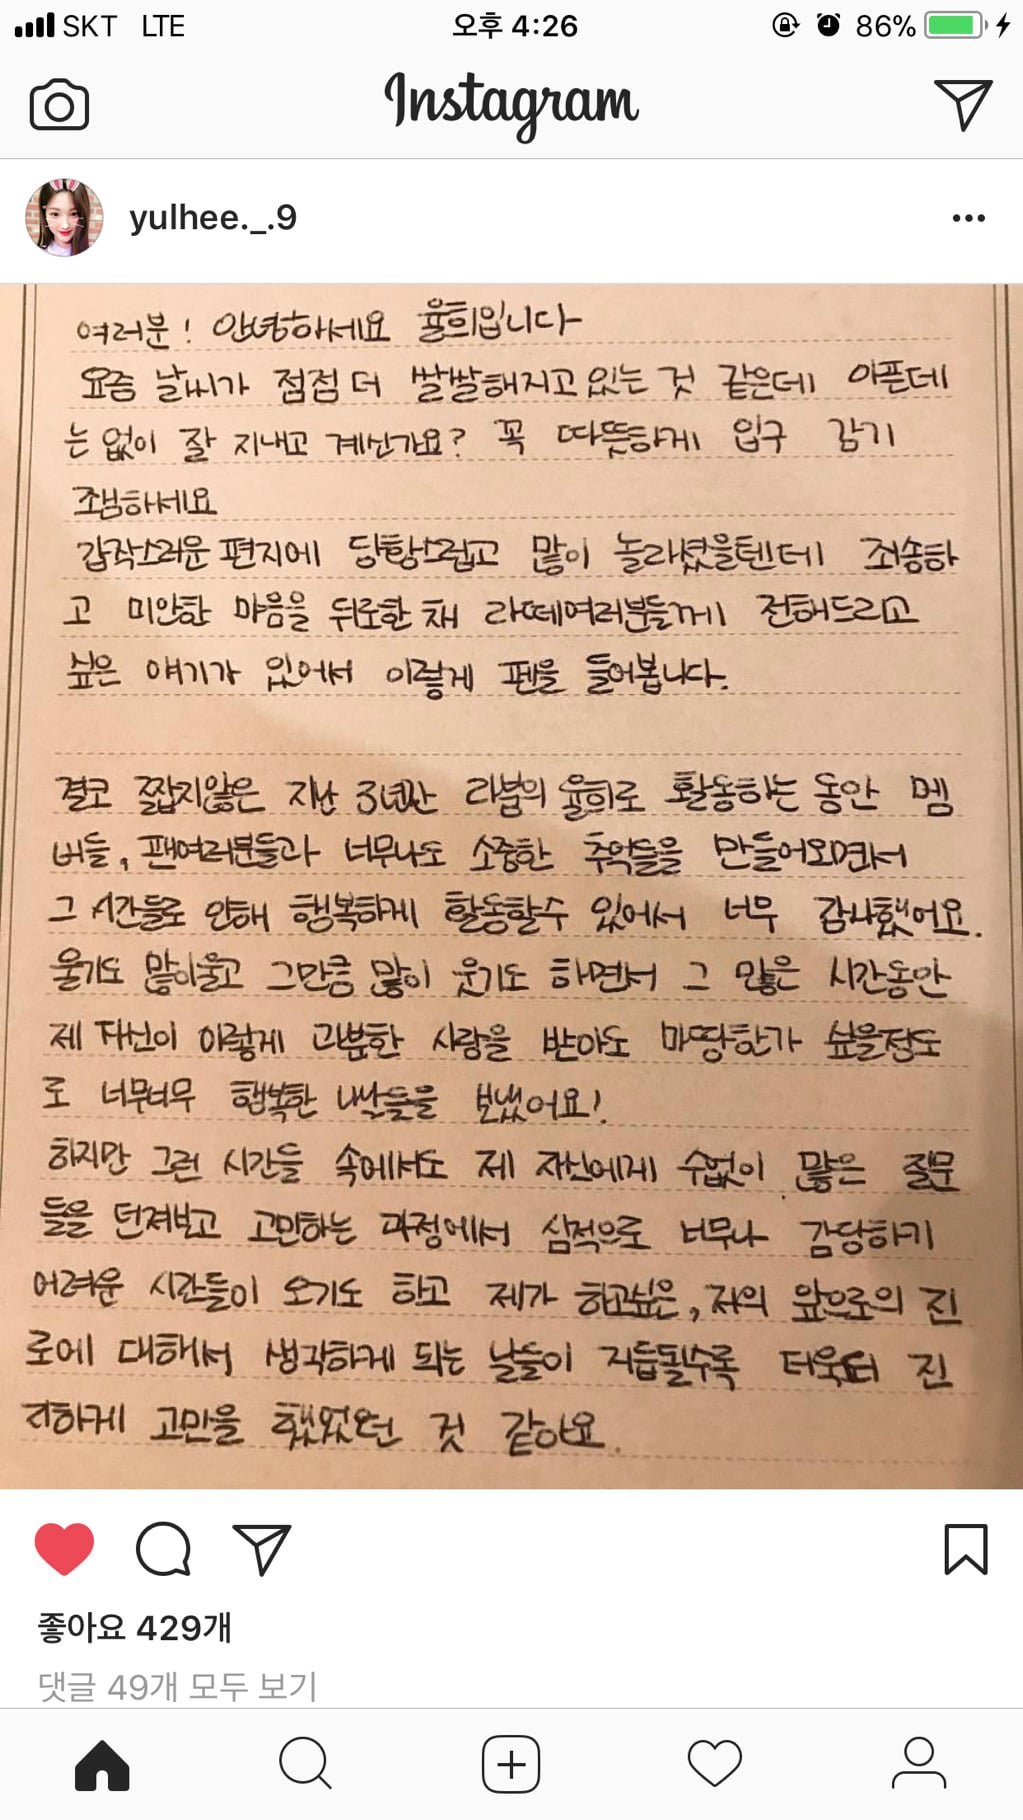 SKT LTE 오후 4:26 86%
Instagram
yulhee._.9
여러분! 안녕하세요 율희입니다
요즘 날씨가 점점 더 쌀쌀해지고있는 것 같은데 아픈데
는 없이 잘 지내고 계신가요? 꼭 따뜻하게 입구 감기
조심하세요
갑작스러운 편지에 당황스럽고 많이 놀라셨을텐데 죄송하
고 미안한 마음을 뒤로한 채 라떼여러분들께 전해드리고
싶은 얘기가 있어서 이렇게 펜을 들어봅니다.
결코 짧지않은 지난 3년간 라붐의 율희로 활동하는 동안 멤
버들, 팬여러분들과 너무나도 소중한 추억들을 만들어오면서
그 시간들로 인해 행복하게 활동할수 있어서 너무 감사했어요.
울기도 많이울고 그만큼 많이 웃기도 하면서 그 많은 시간동안
제 자신이 이렇게 과분한 사랑을 받아도 마땅한가 싶을정도
로 너무너무 행복한 나날들을 보냈어요!
하지만 그런 시간들 속에서도 제 자신에게 수없이 많은 질문
들을 던져보고 고민하는 과정에서 심적으로 너무나 감당하기
어려운 시간들이 오기도 하고 제가 하고싶은, 저의 앞으로의 진
로에 대해서 생각하게 되는 날들이 지듭될수록 더욱더 진
지하게 고민을 했었던 것 같아요.
좋아요 429개
댓글 49개 모두 보기